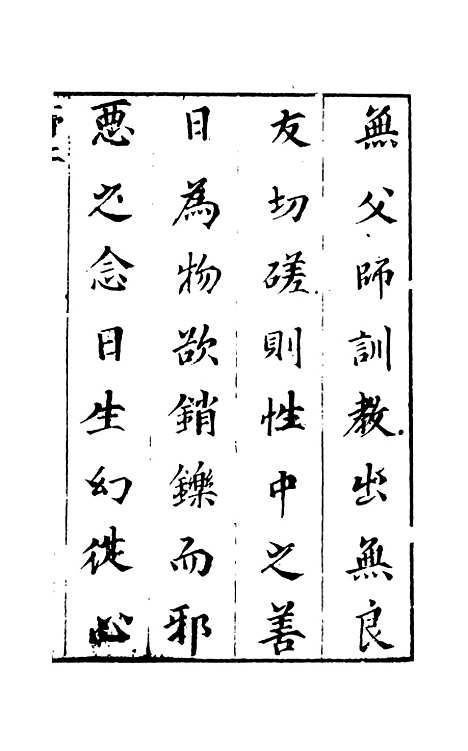 無父師訓教出無良
友切磋則性中之善
日為物欲銷鑠而邪
惡之念日生幻從心